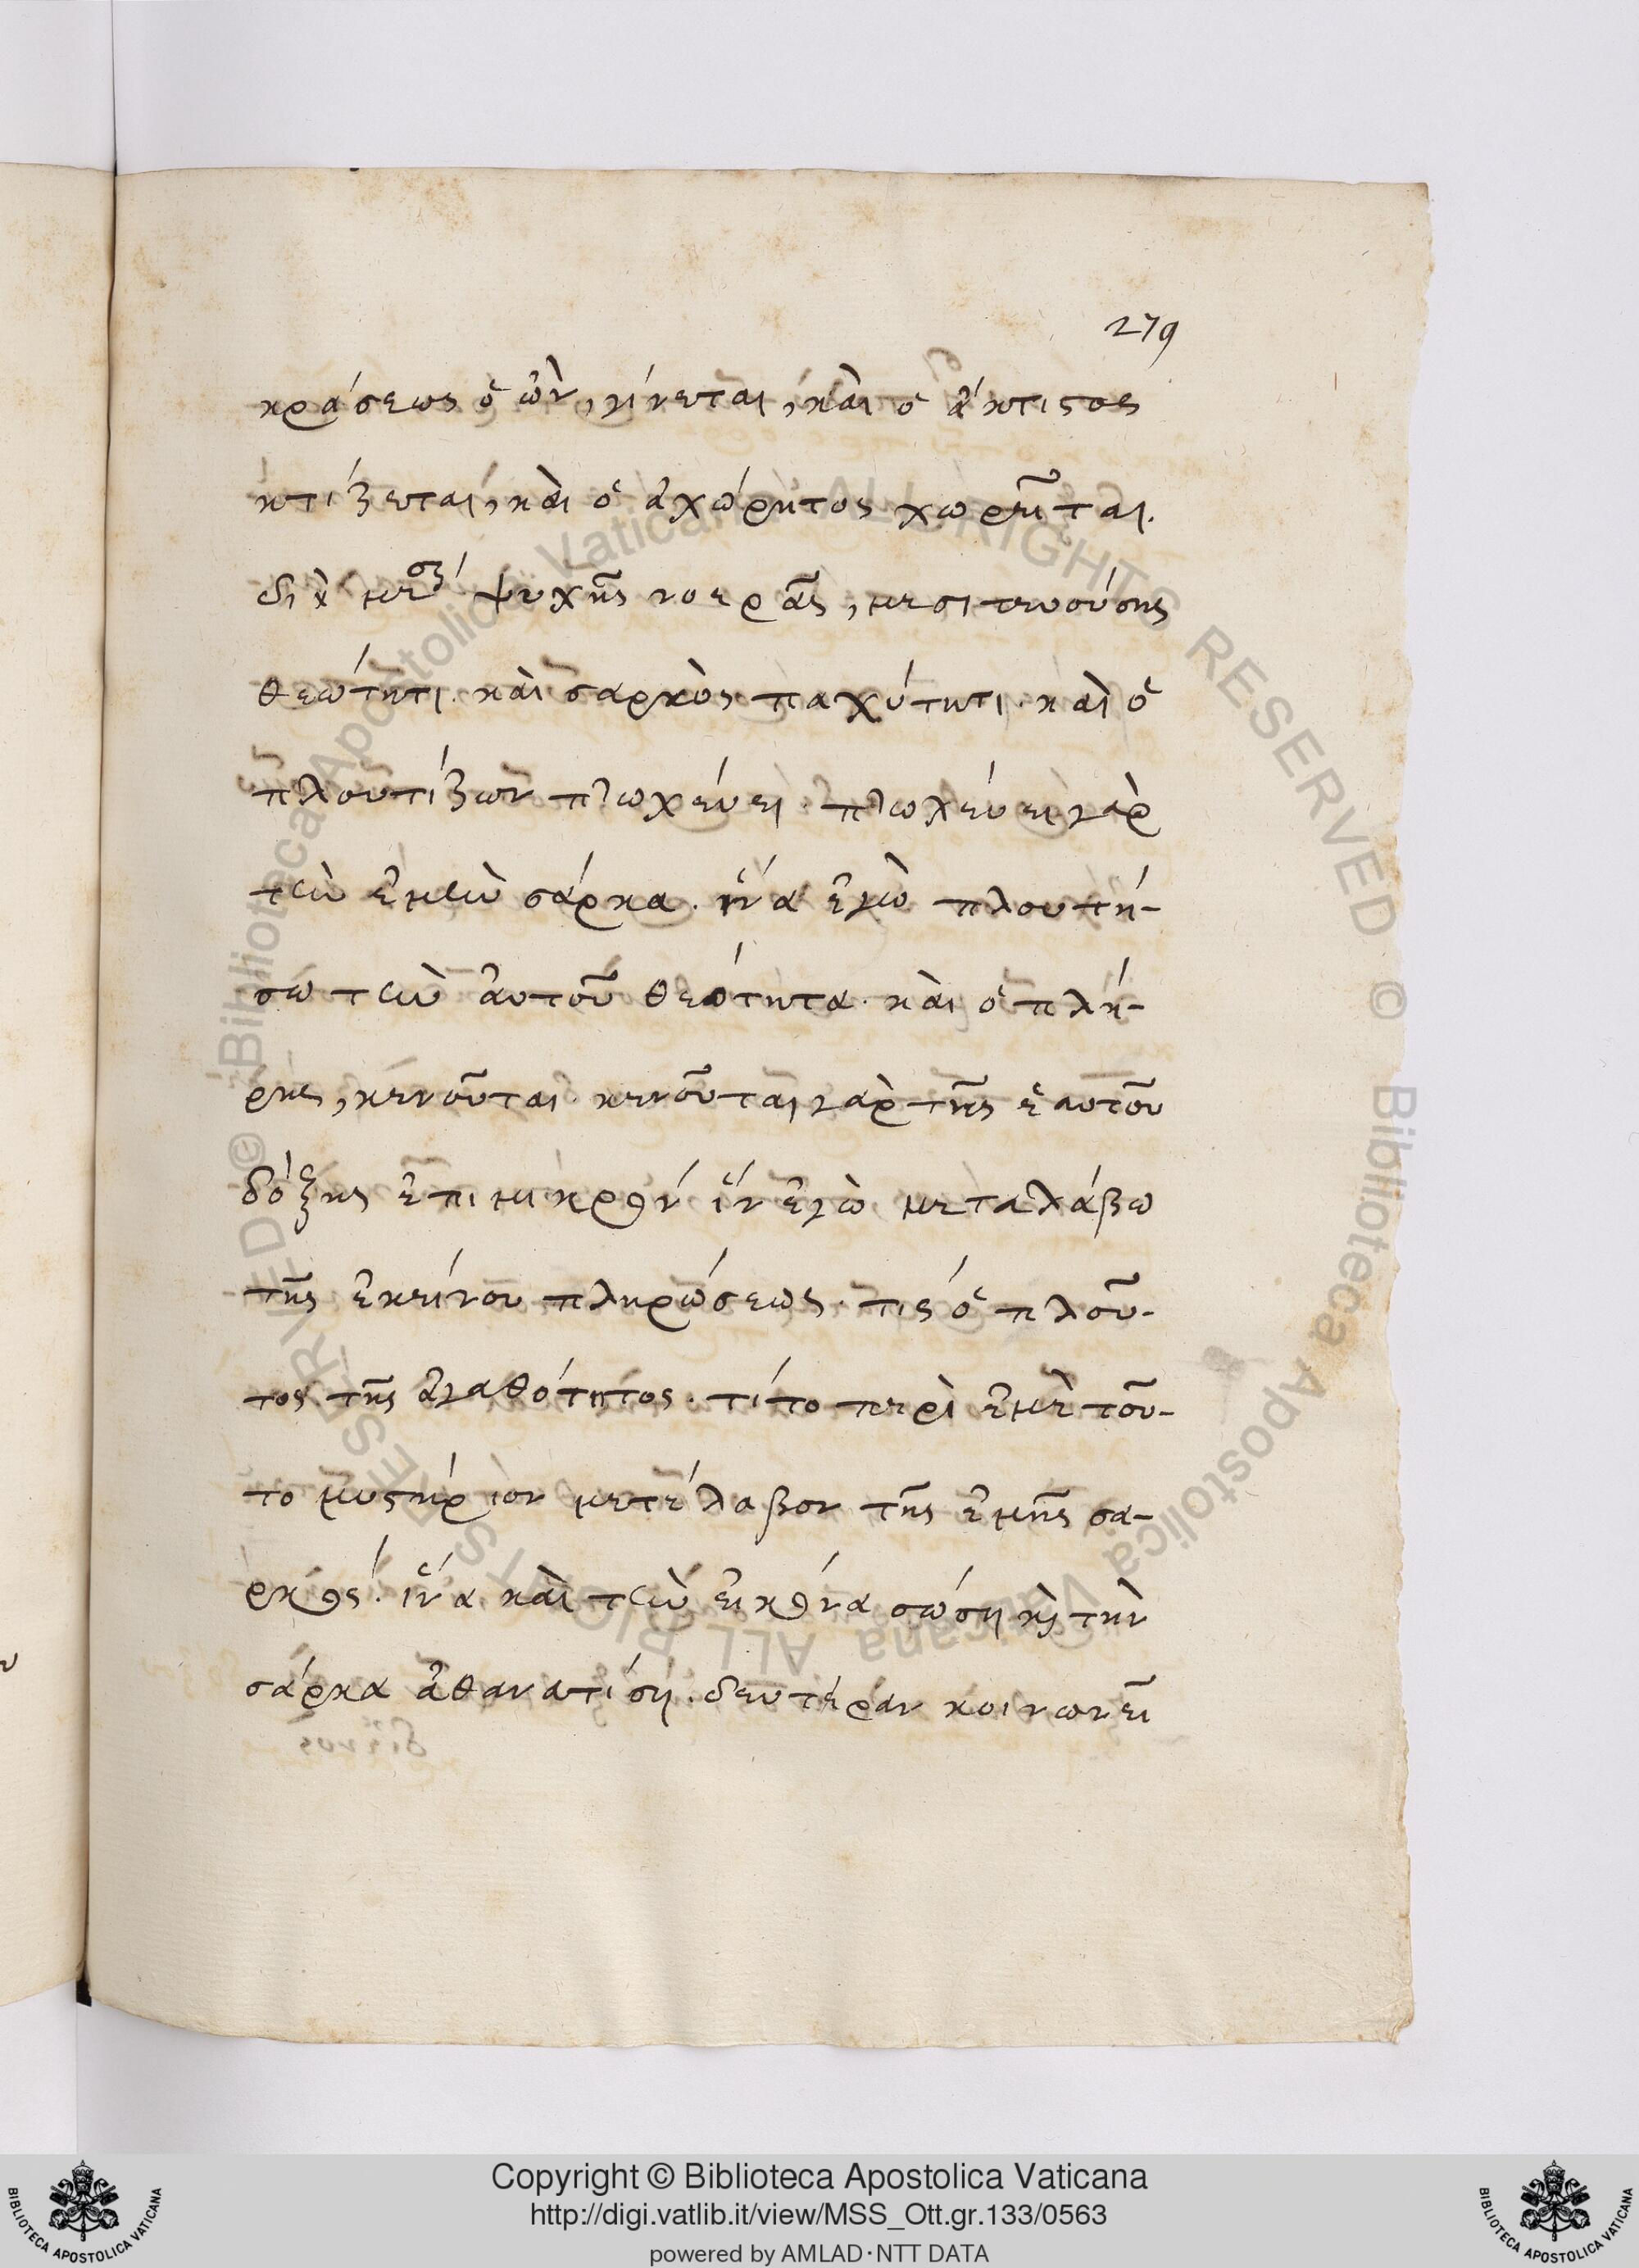 279
κράσεως ὁ ὢν, γίνεται, καὶ ὁ ἄκτιστος
κτίζεται, καὶ ὁ ἀχώρητος χωρεῖται.
διὰ μέσης ψυχῆς νοερᾶς, μεσιτευούσης
θεώτητι. καὶ σαρκὸς παχύτητι. καὶ ὁ
πλουτίζων πτωχεύει. πτωχεύει γὰρ
τὴν ἐμὴν σάρκα. ἵνα ἐγὼ πλουτή-
σω τὴν αὐτοῦ θεότητα. καὶ ὁ πλή-
ρης, κενοῦται. κενοῦται γὰρ τῆς ἑαυτοῦ
δόξης ἐπι μικρόν ἵν ἐγὼ μεταλάβω
τῆς ἐκείνου πληρώσεως. τίς ὁ πλοῦ-
τος τῆς ἀγαθότητος. τί το περὶ ἐμὲ τοῦ-
το μυστήριον μετέλαβον τῆς ἐμῆς σα-
ρκός. ἵνα καὶ τὴν εἰκόνα σώσῃ κὶ τὴν
σάρκα ἀθανατίσῃ. δευτέραν κοινωνεῖ
Copyright © Biblioteca Apostolica Vaticana
http://digi.vatlib.it/view/MSS_Ott.gr.133/0563
powered by AMLAD·NTT DATA
BIBLIOTECA APOSTOLICA VATICANA
BIBLIOTECA APOSTOLICA VATICANA
© Biblioteca Apostolica Vaticana ALL RIGHTS RESERVED © Biblioteca Apostolica Vaticana ALL RIGHTS RESERVED